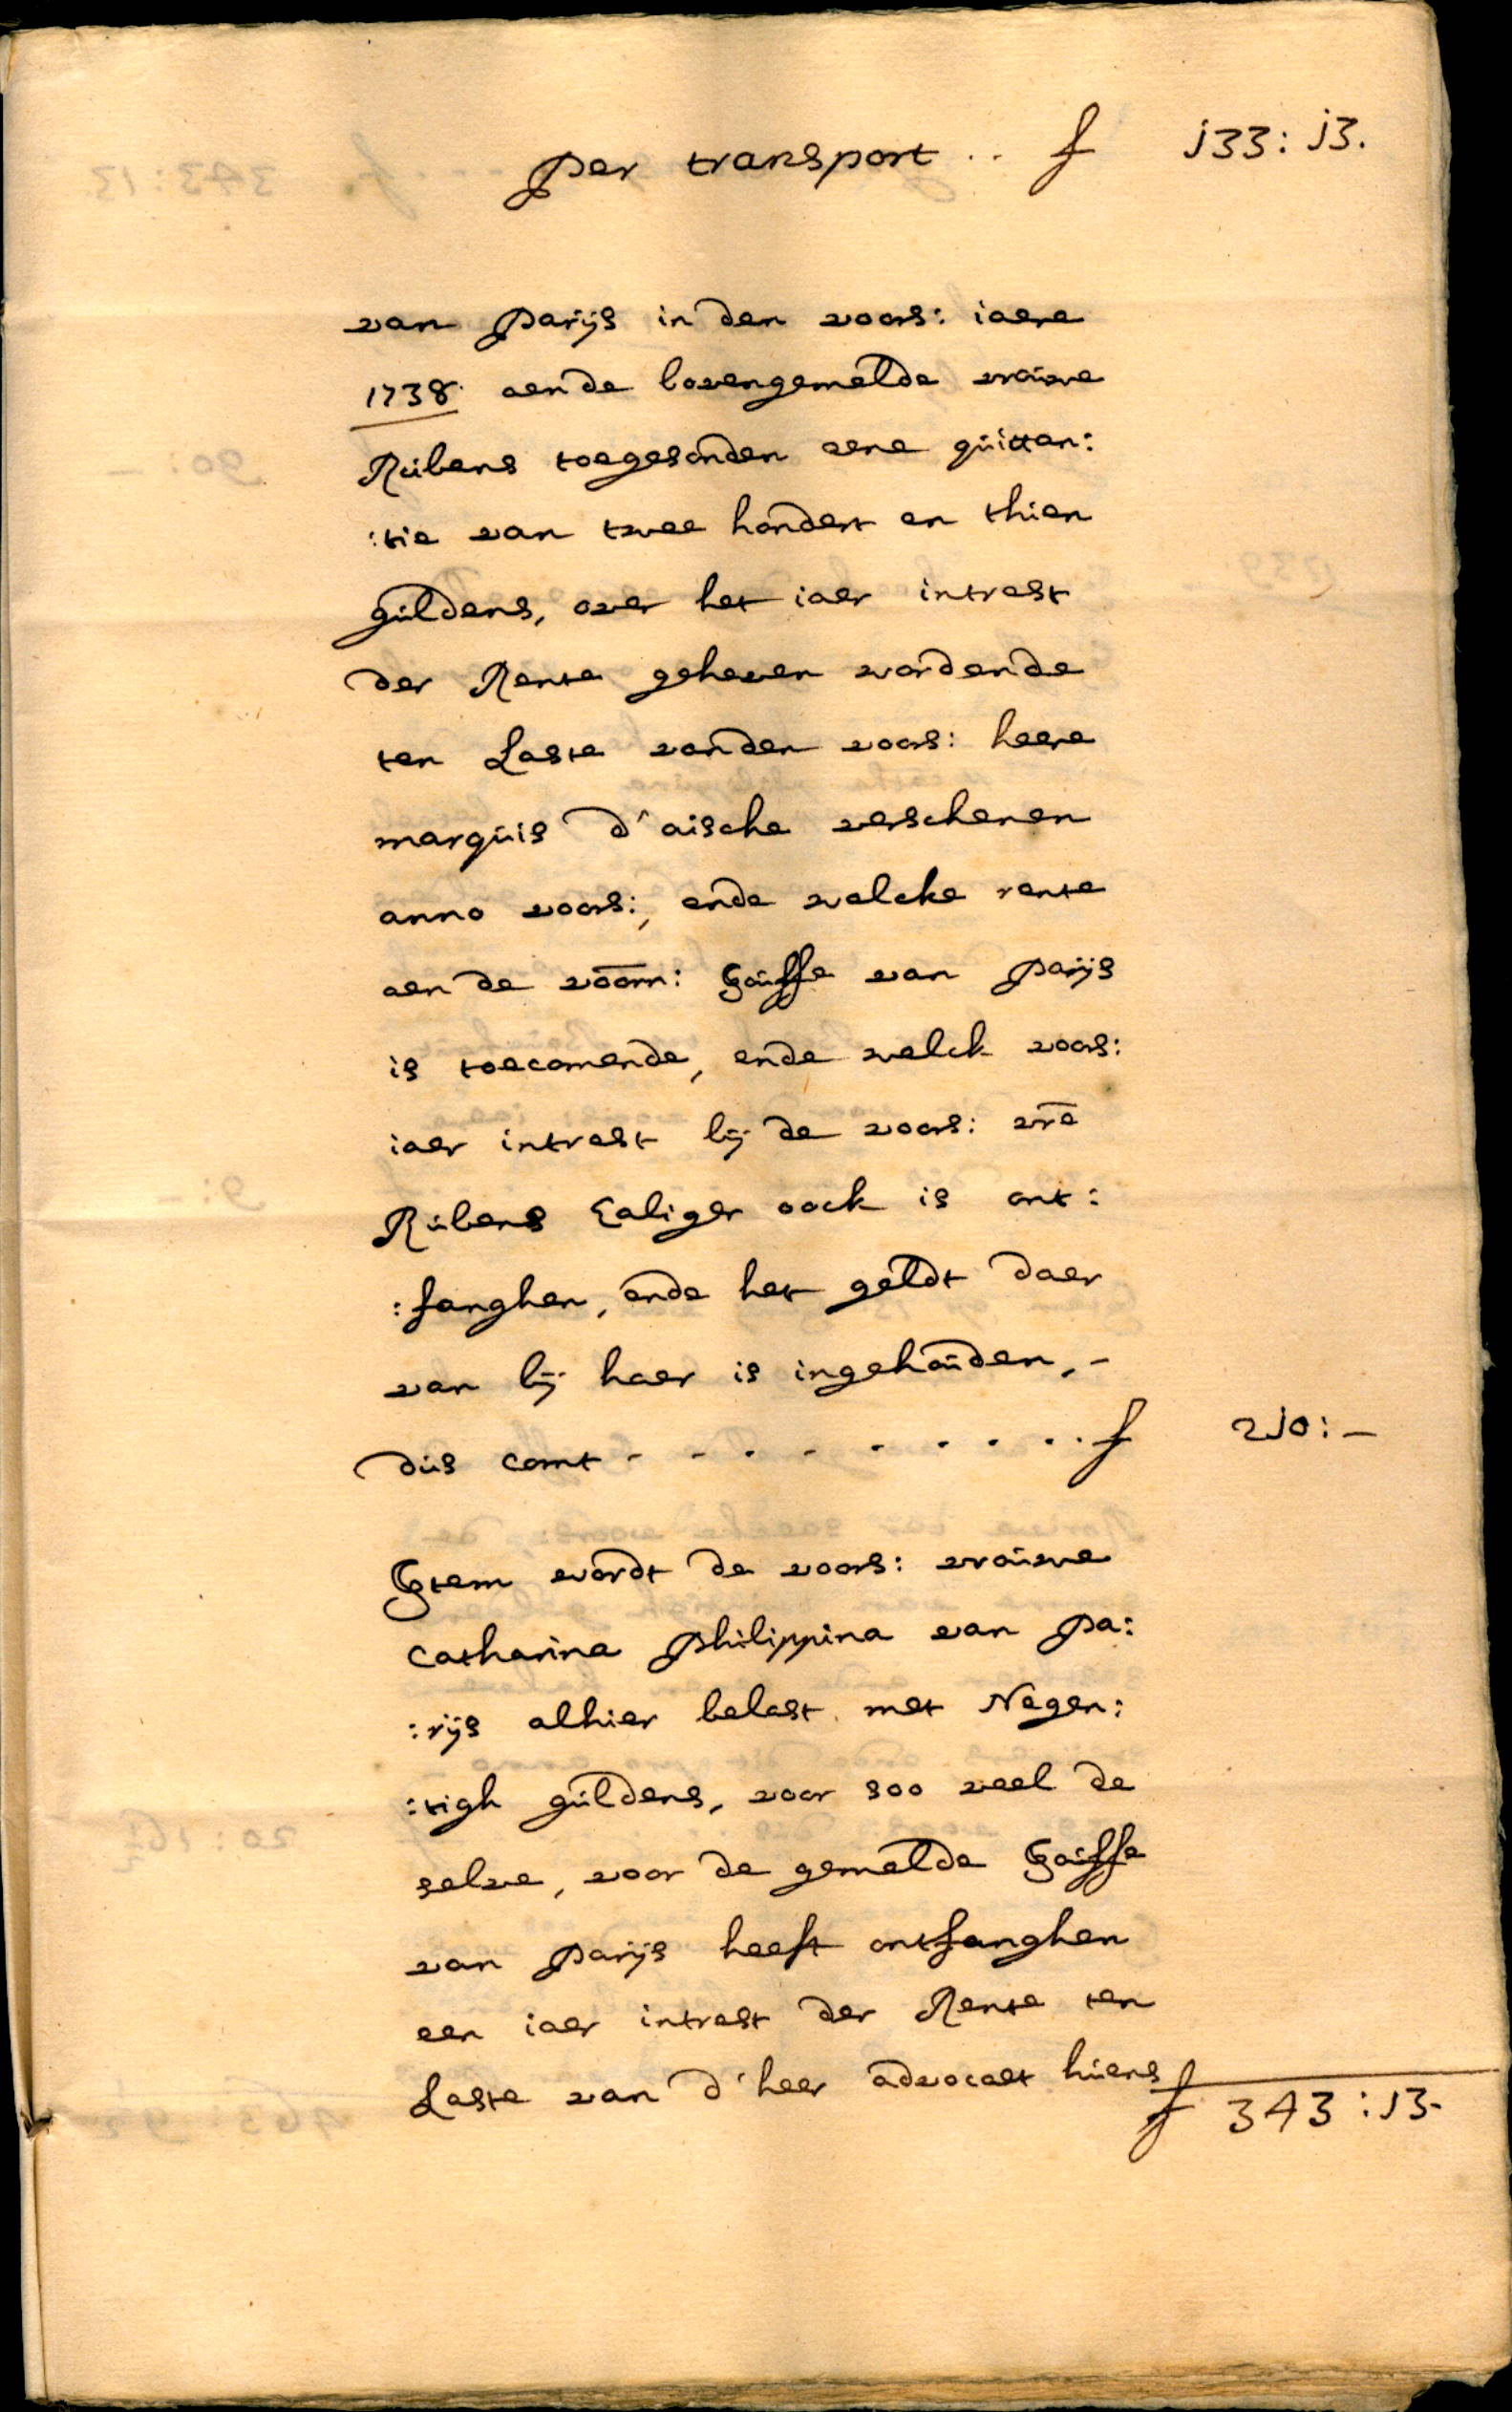 per transport .. f 133: 13.
van parijs in den voors: iaere
1738. aen de bovengemelde vrouwe
Rubens toegesonden eene quittan:
:tie van twee hondert en thien
guldens, over het iaer intrest
der Rente geheven wordende
ten Laste vanden voors: heere
marquis d'aische verschenen
anno voors:, ende welcke rente
aen de voorn: Jouffe van parijs
is toecomende, ende welck voors:
iaer intrest bij de voors: vre
Rubens Saliger oock is ont:
:fanghen, ende het geldt daer
van bij haer is ingehouden, -
dus comt - - . - . . . . . f 210: -
Item wordt de voors: vrouwe
Catharina philippina van pa:
:rijs alhier belast met Negen:
:tigh guldens, voor soo veel de
selve, voor de gemelde Jouffe
van parijs heeft ontfanghen
een iaer intrest der Rente ten
Laste van d'heer advocaet huens
f 343 : 13-